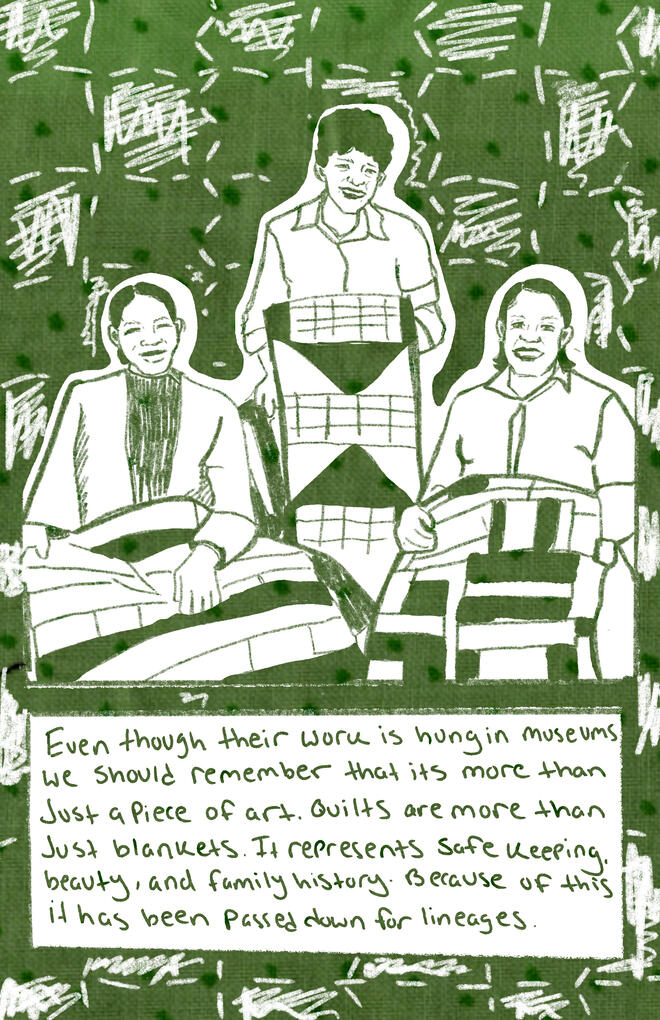 Even though their work is hung in museums
we should remember that its more than
Just a Piece of art. Quilts are more than
Just blankets. It represents safe keeping,
beauty, and family history. Because of this
it has been passed down for lineages.